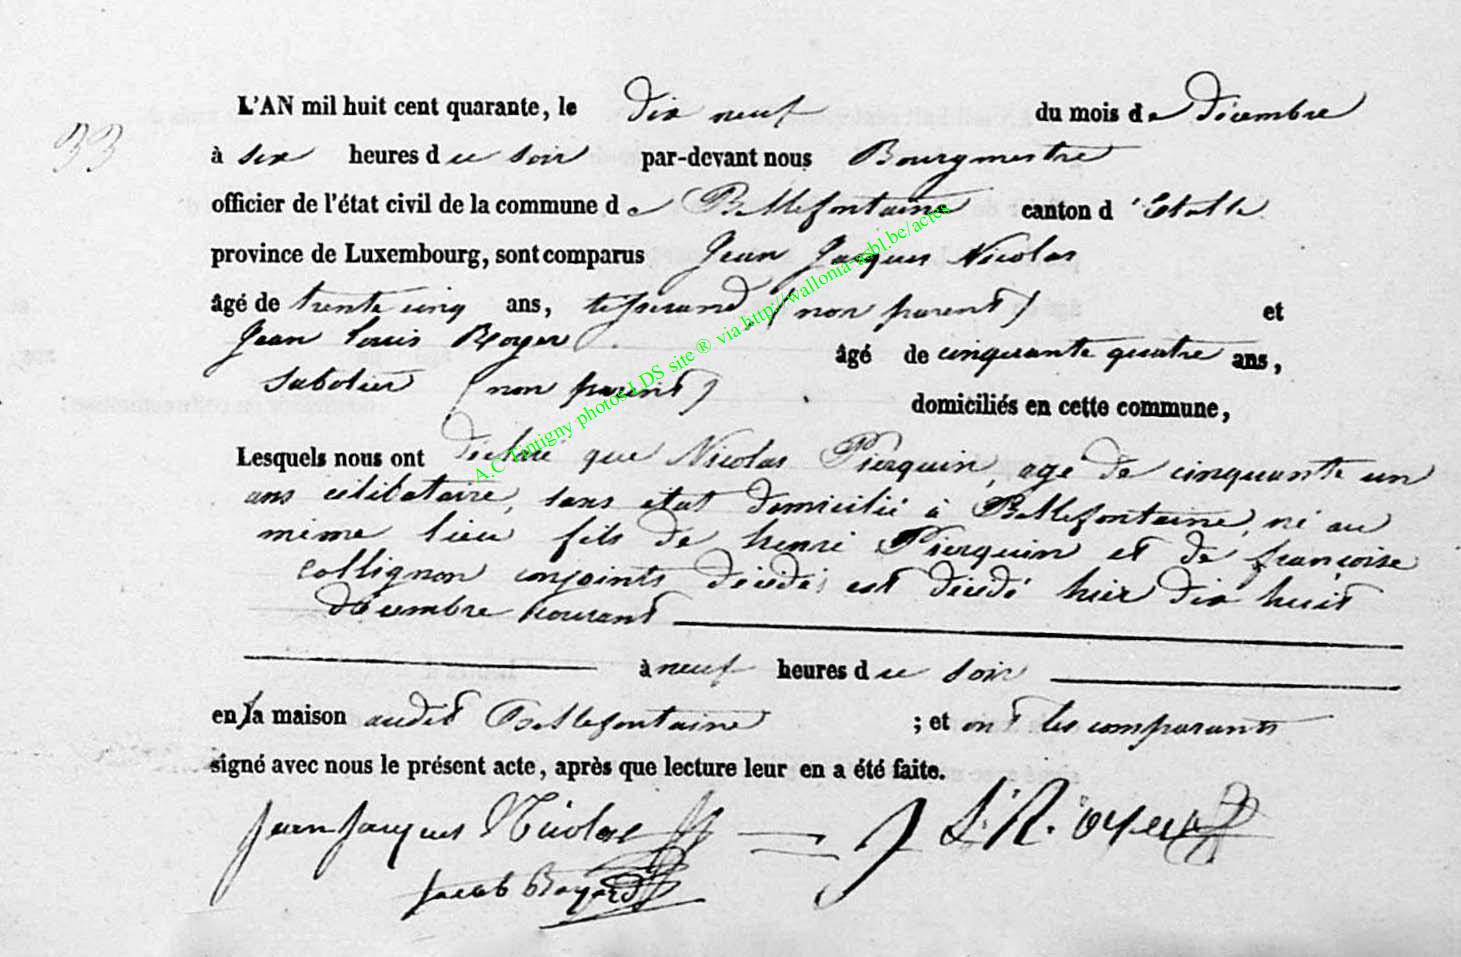 33
L'AN mil huit cent quarante, le dix neuf du mois de décembre
à six heures du soir par-devant nous Bourgmestre
officier de l'état civil de la commune de Bellefontaine canton d'Etalle
province de Luxembourg, sont comparus Jean Jacques Nicolas
âgé de trente cinq ans, tisserand, (non parent) et
Jean Louis Royer âgé de cinquante quatre ans,
sabotier (non parent) domiciliés en cette commune,
Lesquels nous ont déclaré que Nicolas Pierquin, age de cinquante un
ans célibataire, sans état domicilié à Bellefontaine, né au
même lieu fils de henri Pierquin et de françoise
collignon conjoints décédés est décédé hier dix huit
décembre courant
à neuf heures du soir
en la maison audit Bellefontaine ; et ont les comparants
signé avec nous le présent acte, après que lecture leur en a été faite.
Jean Jacques Nicolas J L. Royer
Jacob
A.C Tintigny photos LDS site ® via http://wallonia-asbl.be/actes